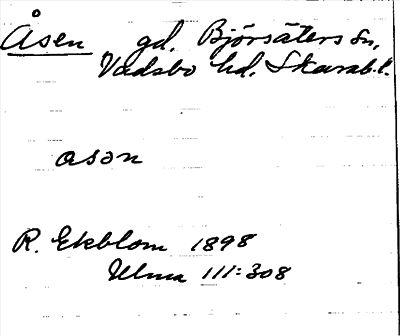 Åsen gd. Björsäters sn,
Vadsbo hd. Skarab.l.
asən
R. Ekblom 1898
Ulma 111:308